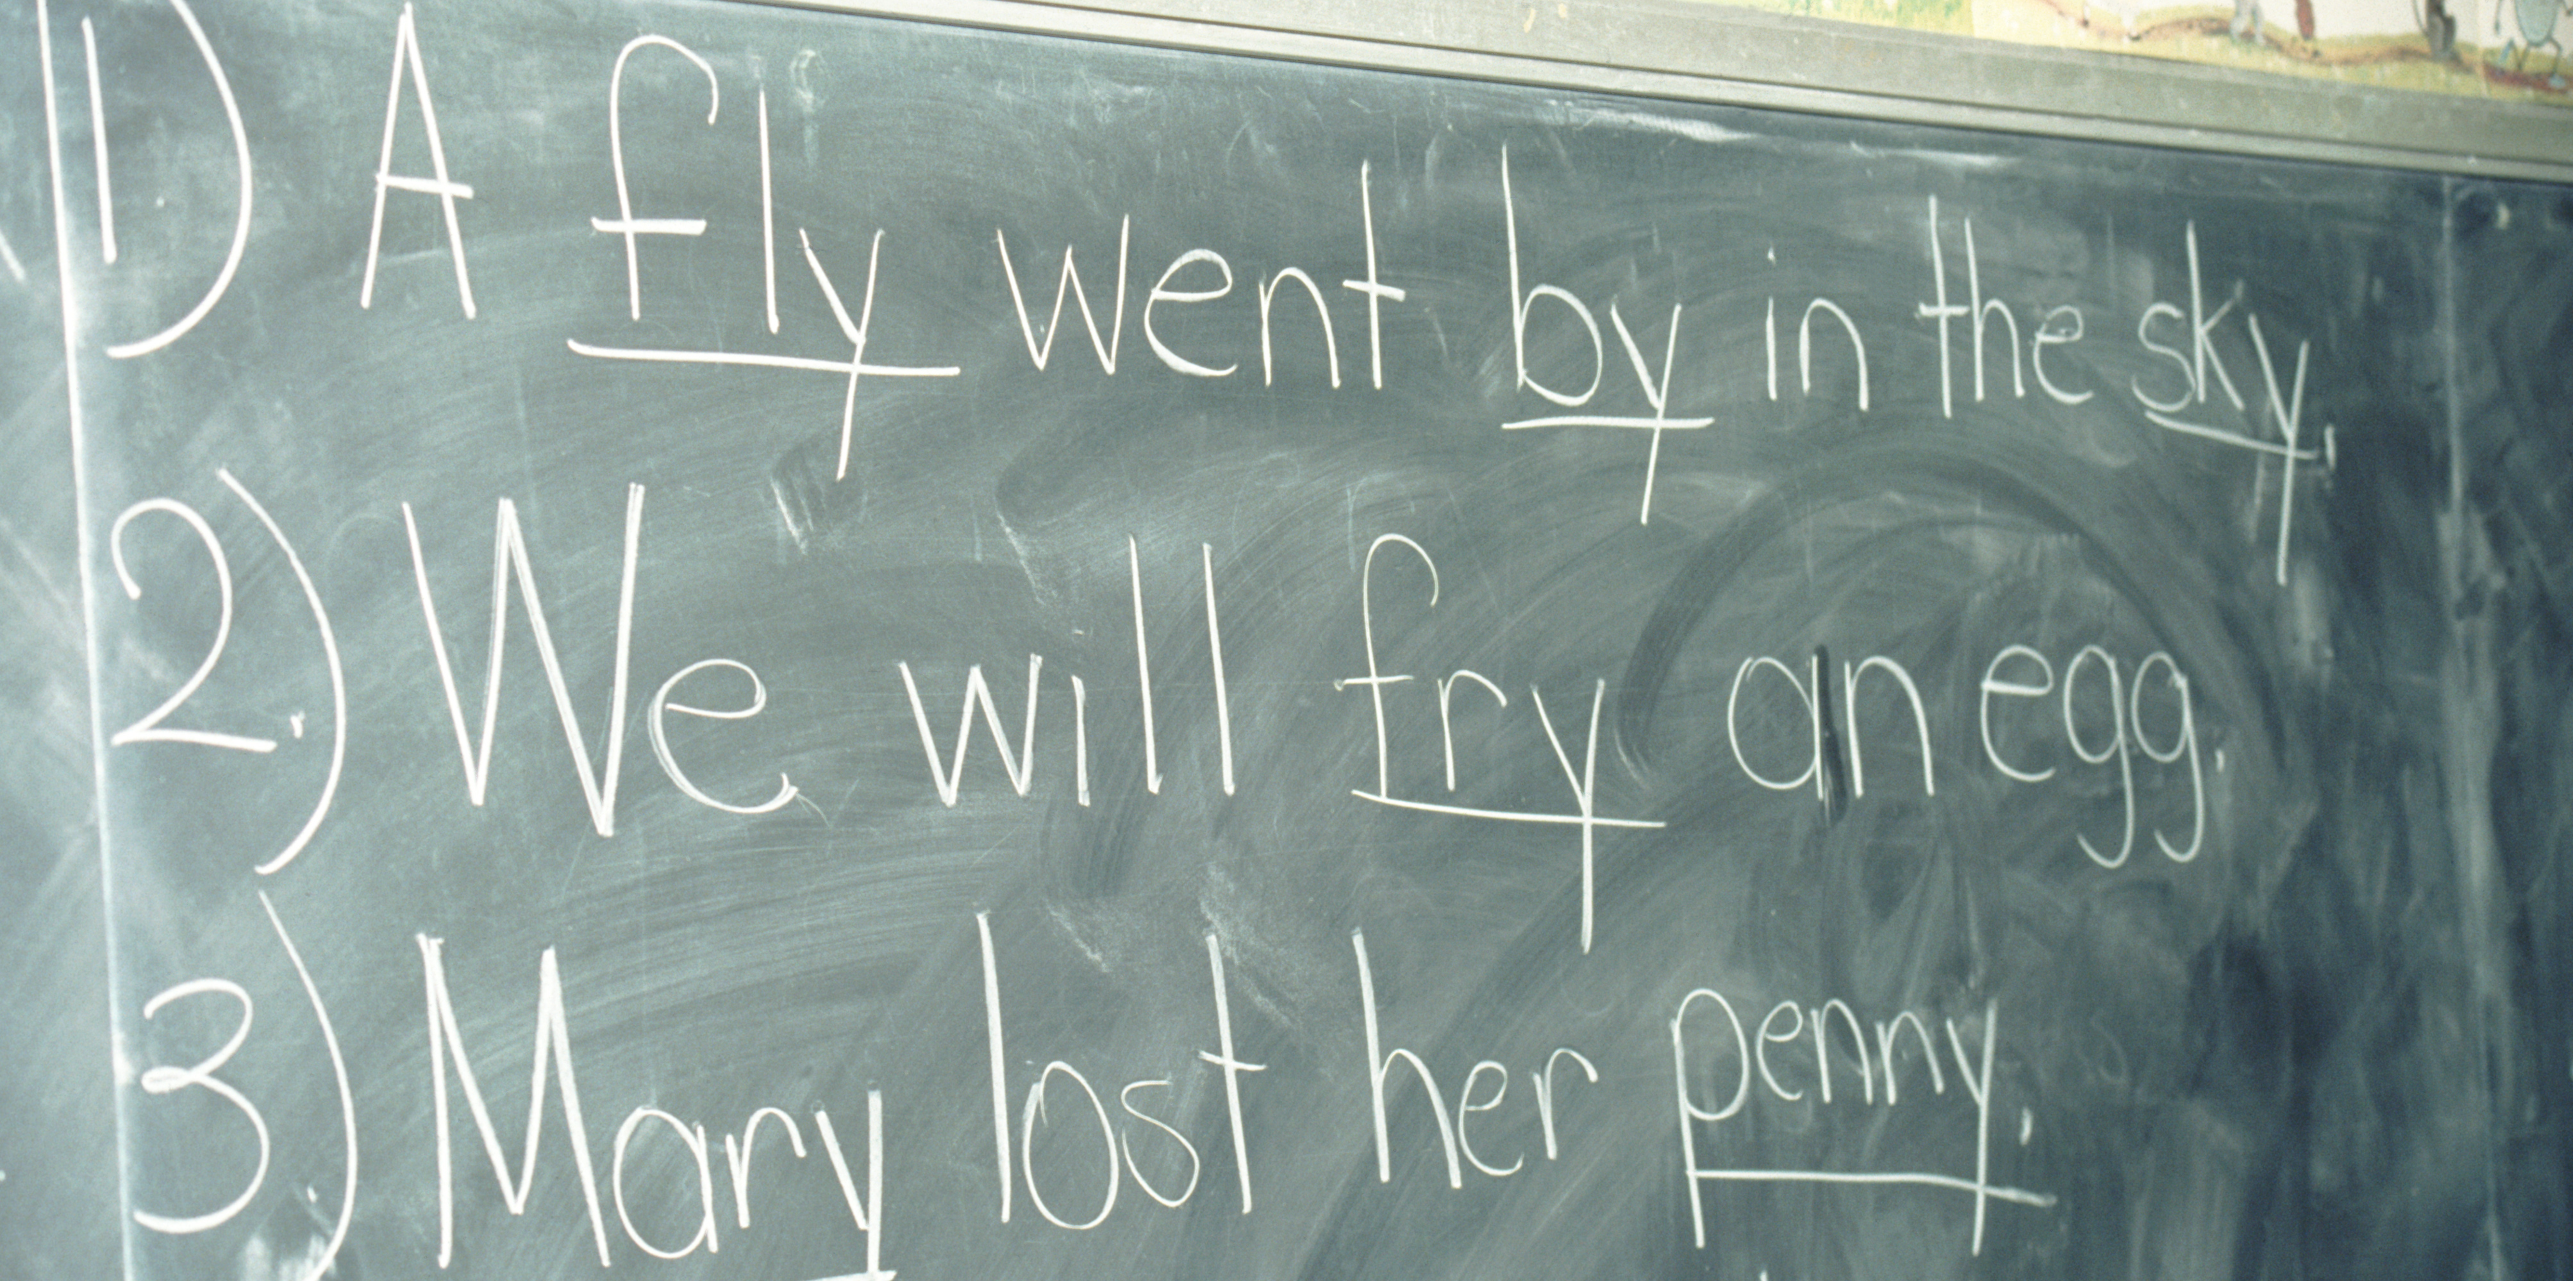 1) A fly went by in the sky.
2.) We will fry an egg.
3.) Mary lost her penny.